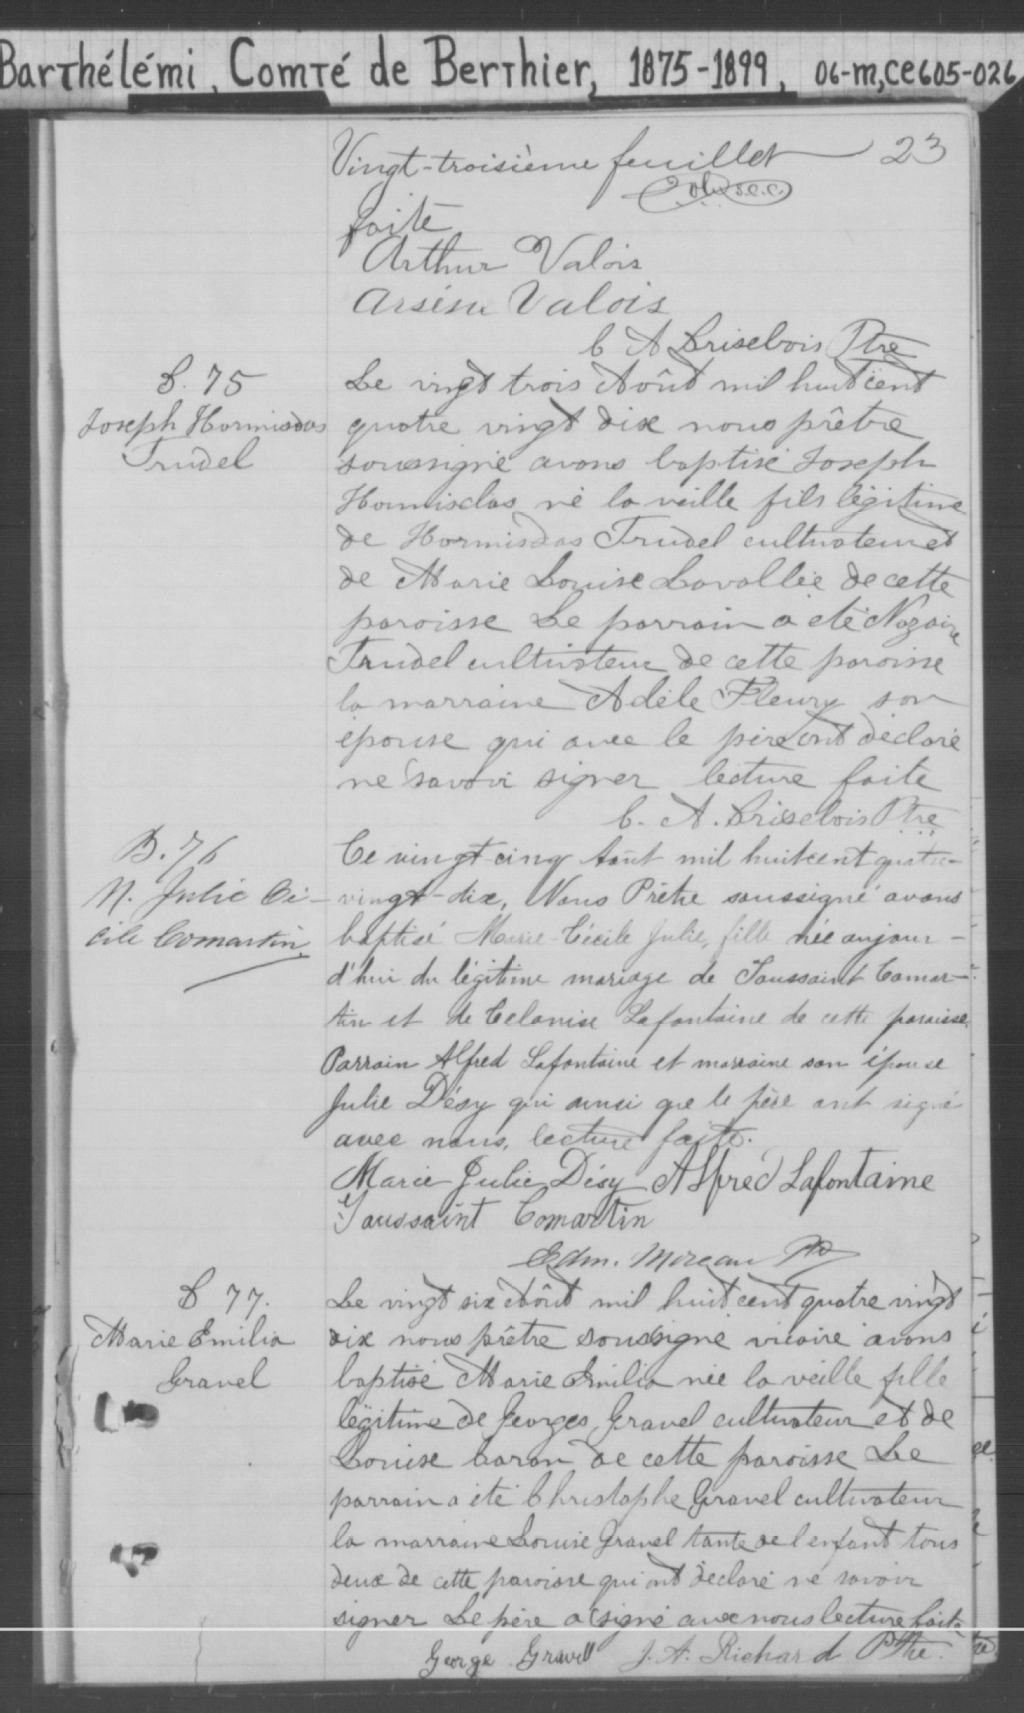 Barthélémi, Comté de Berthier, 1875-1899, 06-M, CE605-026
Vingt-troisième feuillet 23
faite
Arthur Valois
Arsène Valois
C. A. Brisebois Ptre
B. 75
Joseph Hormisdas
Trudel
Le vingt trois Août mil huit cent
quatre vingt dix nous prêtre
soussigné avons baptisé Joseph
Hormisdas né la veille fils légitime
de Hormisdas Trudel cultivateur et
de Marie Louise Lavallée de cette
paroisse Le parrain a été Nazaire
Trudel cultivateur de cette paroisse
la marraine Adèle Fleury son
épouse qui avec le père ont déclaré
ne savoir signer lecture faite
C. A. Brisebois Ptre
B. 76
M. Julie Cé-
cile Comartin
Ce vingt cinq Août mil huit cent quatre-
vingt-dix, Nous Prêtre soussigné avons
baptisé Marie-Cécile Julie, fille née aujour-
d'hui du légitime mariage de Toussaint Comar-
tin et de Celanise Lafontaine de cette paroisse.
Parrain Alfred Lafontaine et marraine son épouse
Julie Désy qui ainsi que le père ont signé
avec nous, lecture faite.
Marie Julie Désy Alfred Lafontaine
Toussaint Comartin
Edm. Moreau Ptre
B 77.
Marie Emilia
Gravel
Le vingt six Août mil huit cent quatre vingt
dix nous prêtre soussigné vicaire avons
baptisé Marie Emilia née la veille fille
légitime de Georges Gravel cultivateur et de
Louise Caron de cette paroisse Le
parrain a été Christophe Gravel cultivateur
la marraine Louise Gravel tante de l'enfant tous
deux de cette paroisse qui ont déclaré ne savoir
signer Le père a signé avec nous lecture faite
George Gravell J. A. Richard Ptre.